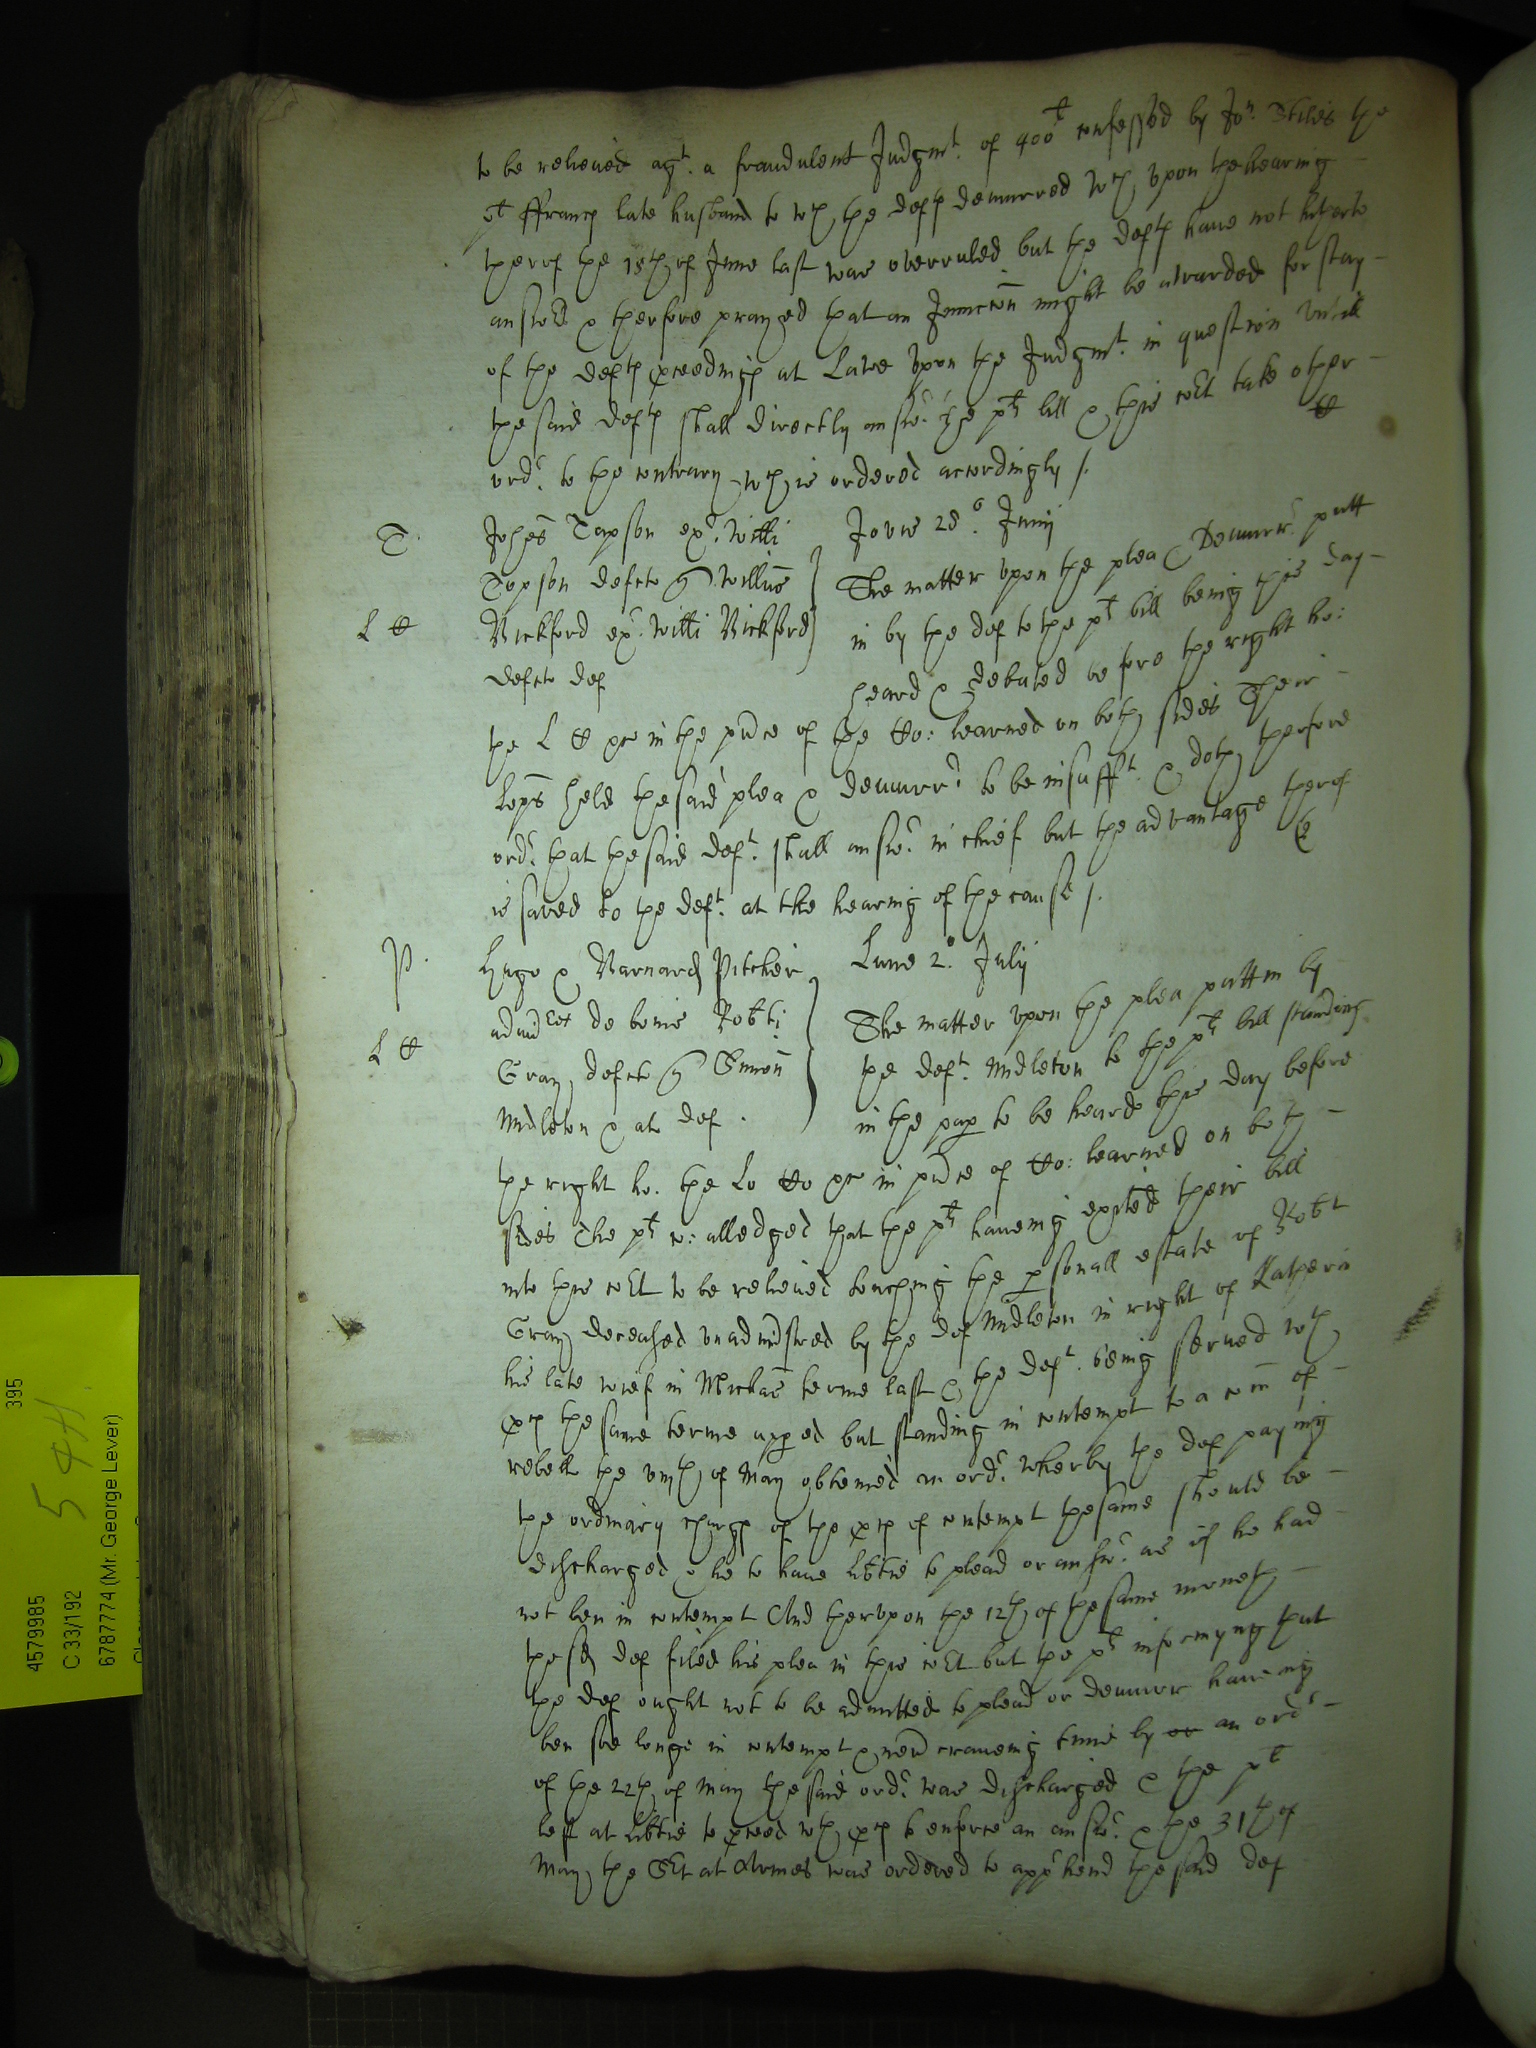 to be releived agt. a fraudulent Judgmt. of 400l confessed by Jon. Stiles the
plt ffrancs late husband to wch the defts demurred wch upon the hearing
therof the 18th of June last was overruled but the defts have not hitherto
answed & therfore prayed that an Iniuncc͠on might be awarded for stay
of the defts pceedings at Lawe upon the Judgmt. in question Untill
the said defts shall directly answr. the plts bill & this co͠rt take other
ordr. to the contrary wch is ordered accordingly /.
H
T.
Johes Tapson exr. Willi
Topson defcti q Willius
Bickford exr. Willi Bickford
defcti def
L H
Jovis 28o Junij
The matter upon the plea & Demurrr. putt
in by the def to the plts bill being this day
heard & debated before the right ho:
the L H &c in the pnce of the Co: learned on both sides Their
Lops held the said plea & demurrr. to be insufft. & doth therfore
ordr. that the said deft. shall answr. in chief but the advantage therof
is saved to the deft. at the hearing of the cause /.
P.
Hugo & Barnard Pitcher
admi͠stres de bonis Robti
Gray defcti q Simon
Midleton & al def.
L H
Lune 2o. Julij
The matter upon the plea putt in by
the deft. Midleton to the plts bill standing
in the pap to be heard this day before
the right ho. the Lo Ho &c in pnce of Co: learned on both
sides The plts co: alledged that the plts haveing exhited their bill
into this co͠rt to be releived touching the psonall estate of Robt
Gray deceased unadmi͠stred by the def Midleton in right of Katherin
his late wief in Michas terme last & the deft. being served wth
pces the same terme apped but standing in contempt to a com͠ of
rebell the viijth of May obteined an ordr. wherby the def paying
the ordinary chargs of the pces of contempt the same should be
discharged & he to have lib͠tie to plead or answr. as if he had
not ben in contempt And therupon the 12th of the same moneth
the sd def filed his plea in this co͠rt but the plts informyng that
the def ought not to be admitted to plead or demurr haveing
ben soe longe in contempt & never craveing time by or an ordr
of the 22th of May the said ordr. was discharged & the plt
left at lib͠tie to pceed wth pces to enforce an answr. & the 31th of
May the S͠rt at Armes was ordered to apphend the said def
395
5 4H.
4579985
C 33/192
6787774 (Mr. George Lever)